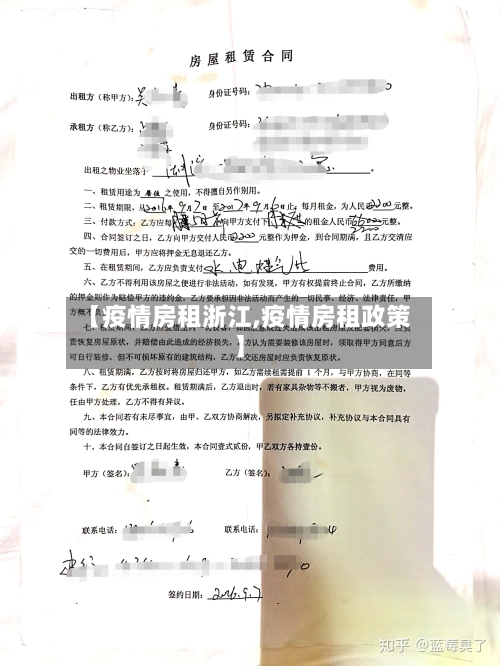 房屋租赁合同
出租方（称甲方）：吴 身份证号码：
承租方（称乙方）： 身份证号码：
出租之物业坐落于
一、租赁用途为 居住 之使用，不得擅自另作别用。
二、租赁期限，从2016年9月7日至2017年9月6日止，每月租金，为人民币2200元整。
三、付款方式，乙方应每 向甲方支付下 的租金人民币6600元整。
2200
四、合同签订之日，乙方向甲方交付人民币2200元整作为押金，到合同期满，且乙方交清应
交的一切费用后，甲方应将押金无息退还乙方。
五、在租赁期间，乙方应负责支付 水电燃气 费用。
六、乙方不得利用该房屋之便进行非法活动，如有发现，甲方有权提前终止合同，乙方所缴纳
的押金则作为赔偿甲方的违约金，乙方要承担因非法活动而产生的一切民事、经济、法律责任，甲
方概不
【疫情房租浙江,疫情房租政策
】
责恢复房屋原状，并赔偿由此造成的经济损失，乙方认为需要装修该房屋时，须取得甲方同意后方
可自行装修，但不可损坏原有的建筑结构，乙方在交还房屋时应负责恢复原状。
八、租赁期满，乙方按时将房屋归还甲方，如乙方需续租需提前 1 个月，与甲方协商，在同等
条件下，乙方有优先承租权。租赁期满后，乙方退出时，若有家具杂物等不搬者，甲方视为废物，
任由甲方处理，乙方不得有异议。
九、本合同若有未尽事宜，由甲、乙双方协商解决，另拟定补充协议，补充协议与本合同具有
同等的法律效力。
十、本合同自签订之日起生效，本合同壹式贰份，甲乙双方各持壹份。
甲方（签名）： 乙方（签名）：
联系电话： 联系电话：
签约日期：2016.9.7
知乎 @蓝莓臭了